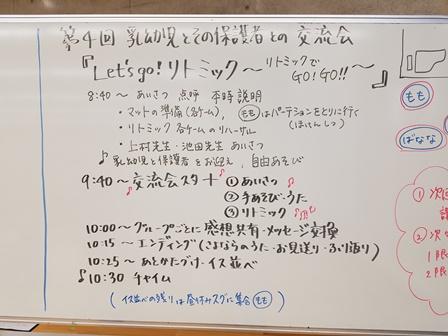 第4回 乳幼児とその保護者との交流会
『Let's go! リトミック〜リトミックでGO!GO!!〜』
8:40〜 あいさつ 点呼 本時説明
・マットの準備(各ゲーム), ももはパーテーションをとりに行く
(ほけんしつ)
・リトミック各ゲームのリハーサル
・上村先生・池田先生 あいさつ
♪乳幼児と保護者をお迎え, 自由あそび
9:40〜交流会スタート
① あいさつ♪
② 手あそび・うた
③ リトミック♪
10:00〜グループごとに感想共有・メッセージ交換
10:15〜エンディング(さよならのうた・お見送り・ふり返り)
10:25〜あとかたづけ・イス並べ
♪10:30 チャイム
(イス並べの残りは昼休みスグに集合 もも)
もも
ばなな
① 次回
② 次
1限
2限